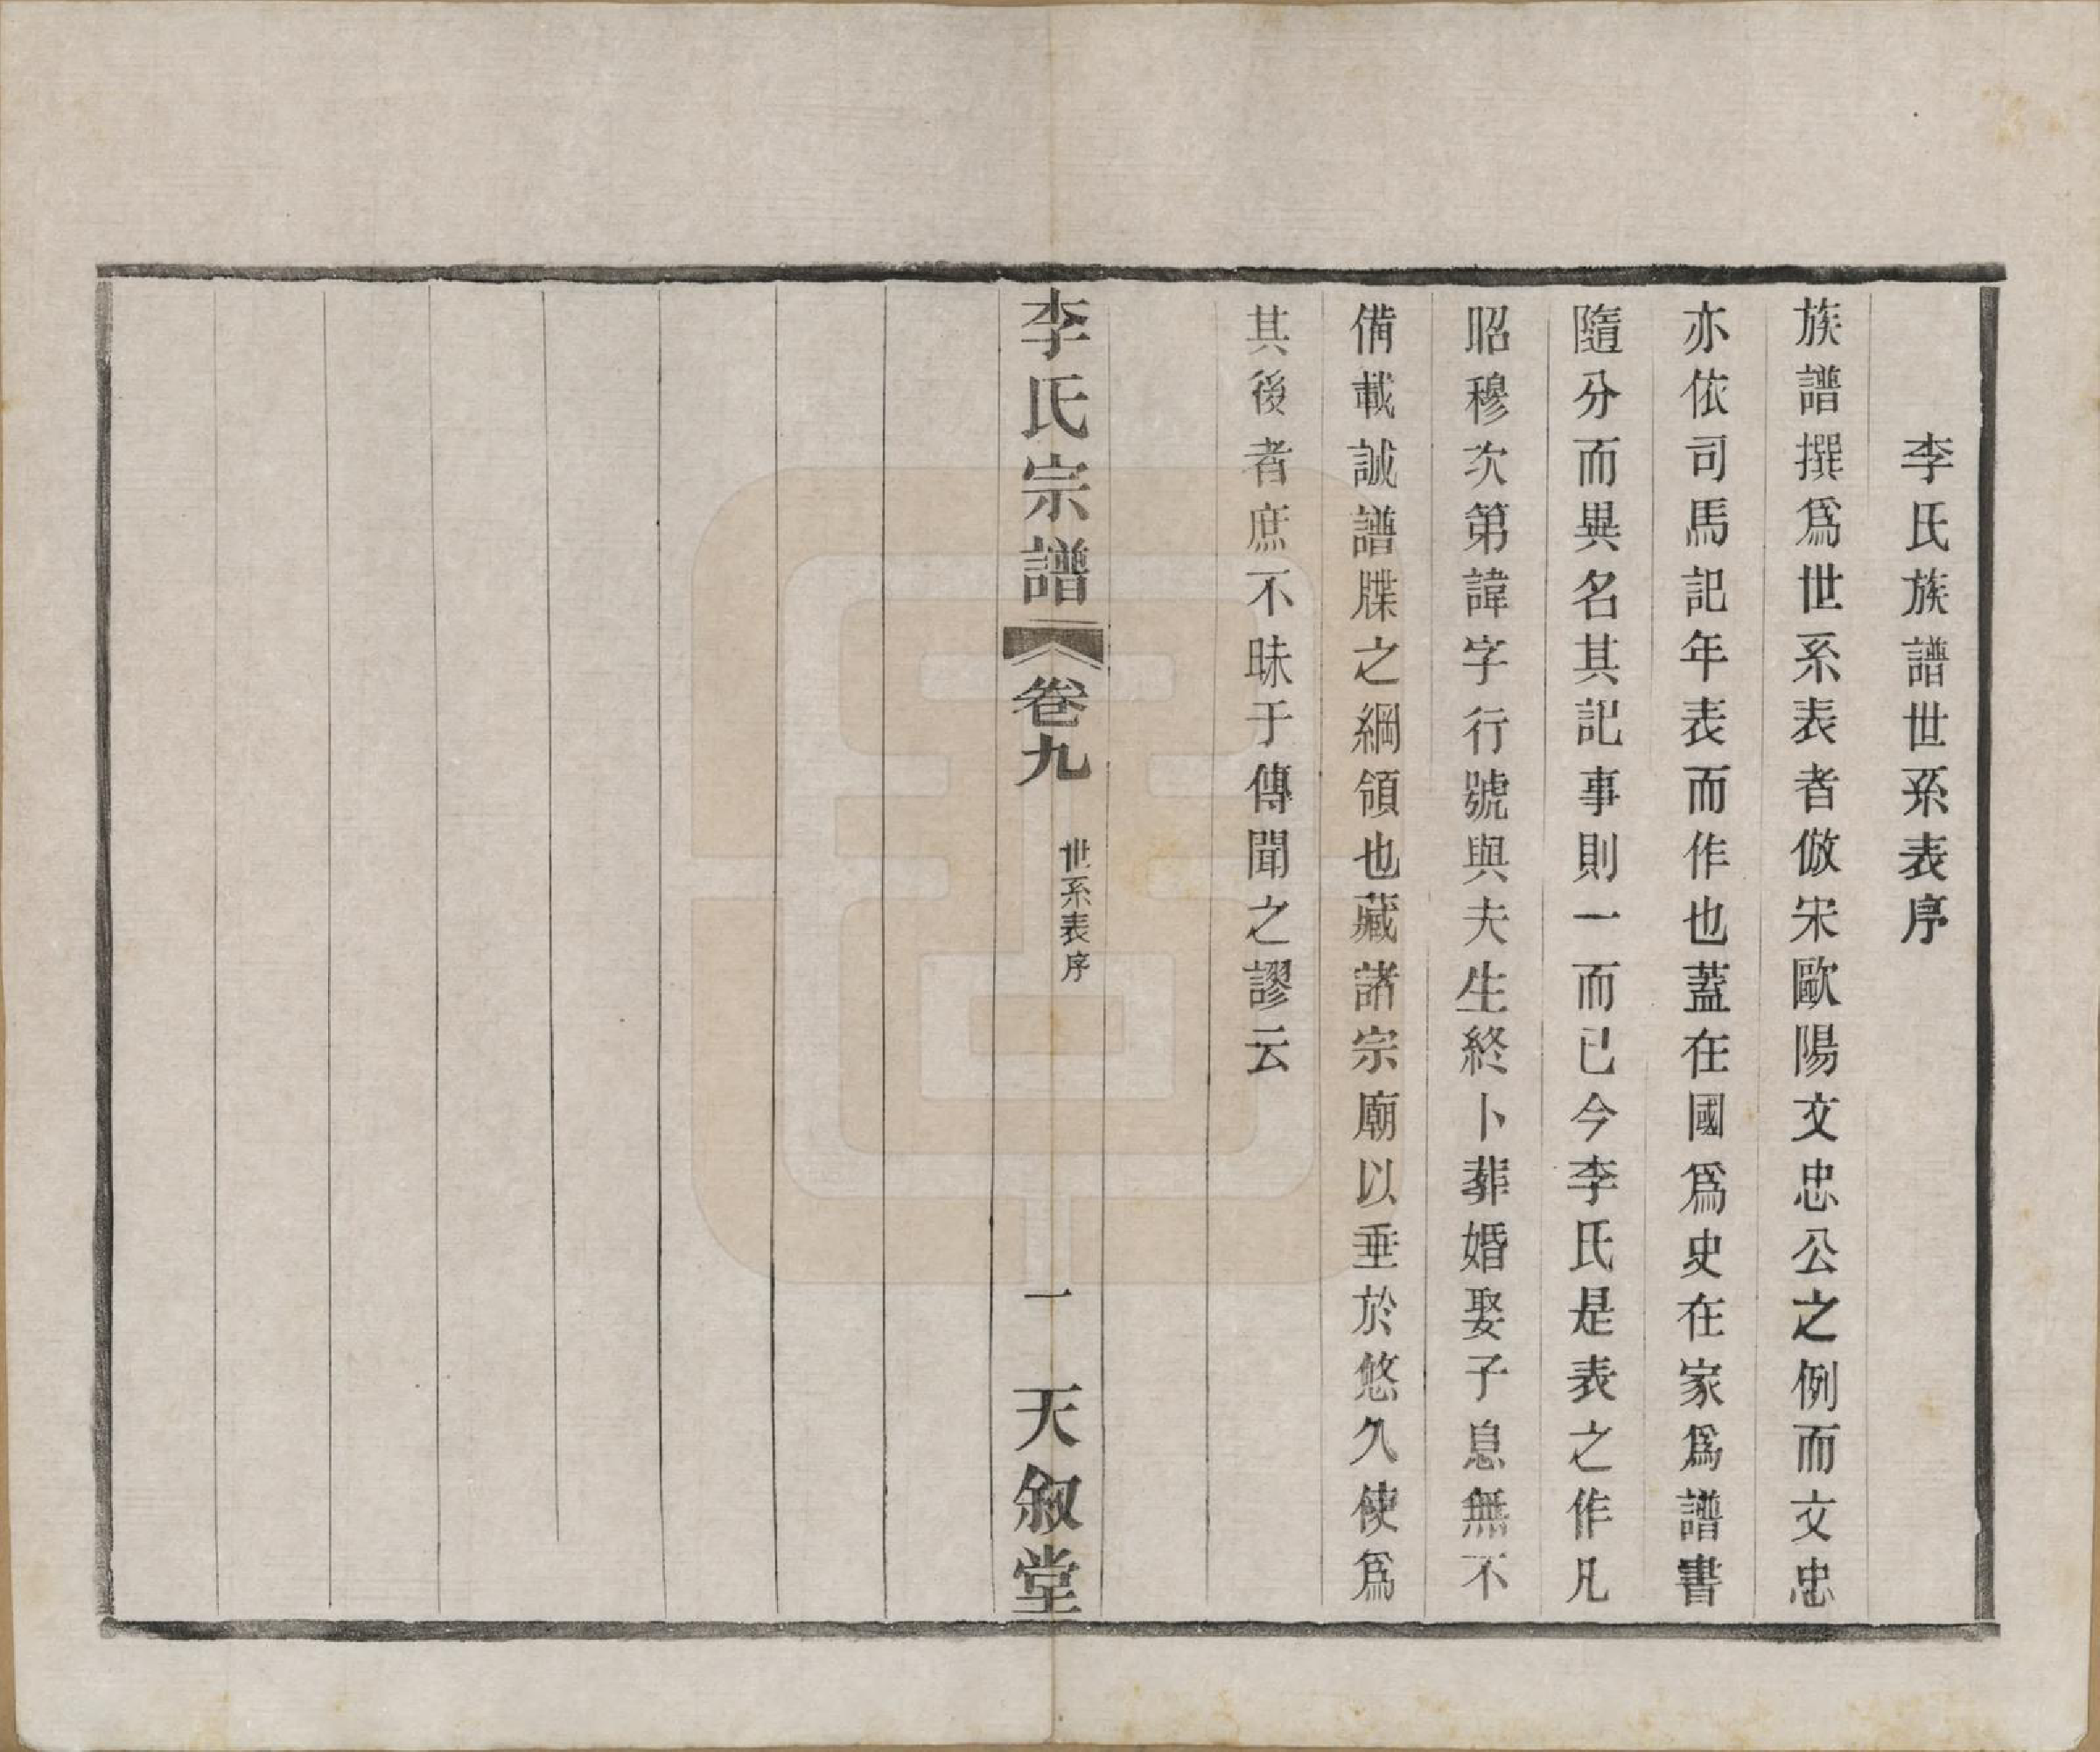 李氏族譜世系表序
族譜撰爲世系表者倣宋歐陽文忠公之例而文忠
亦依司馬記年表而作也蓋在國爲史在家爲譜書
隨分而異名其記事則一而已今李氏是表之作凡
昭穆次第諱字行號與夫生終卜葬婚娶子息無不
備載誠譜牒之綱領也藏諸宗廟以垂於悠久使爲
其後者庶不昧于傳聞之謬云
李氏宗譜
卷九
世系表序
一
天叙堂